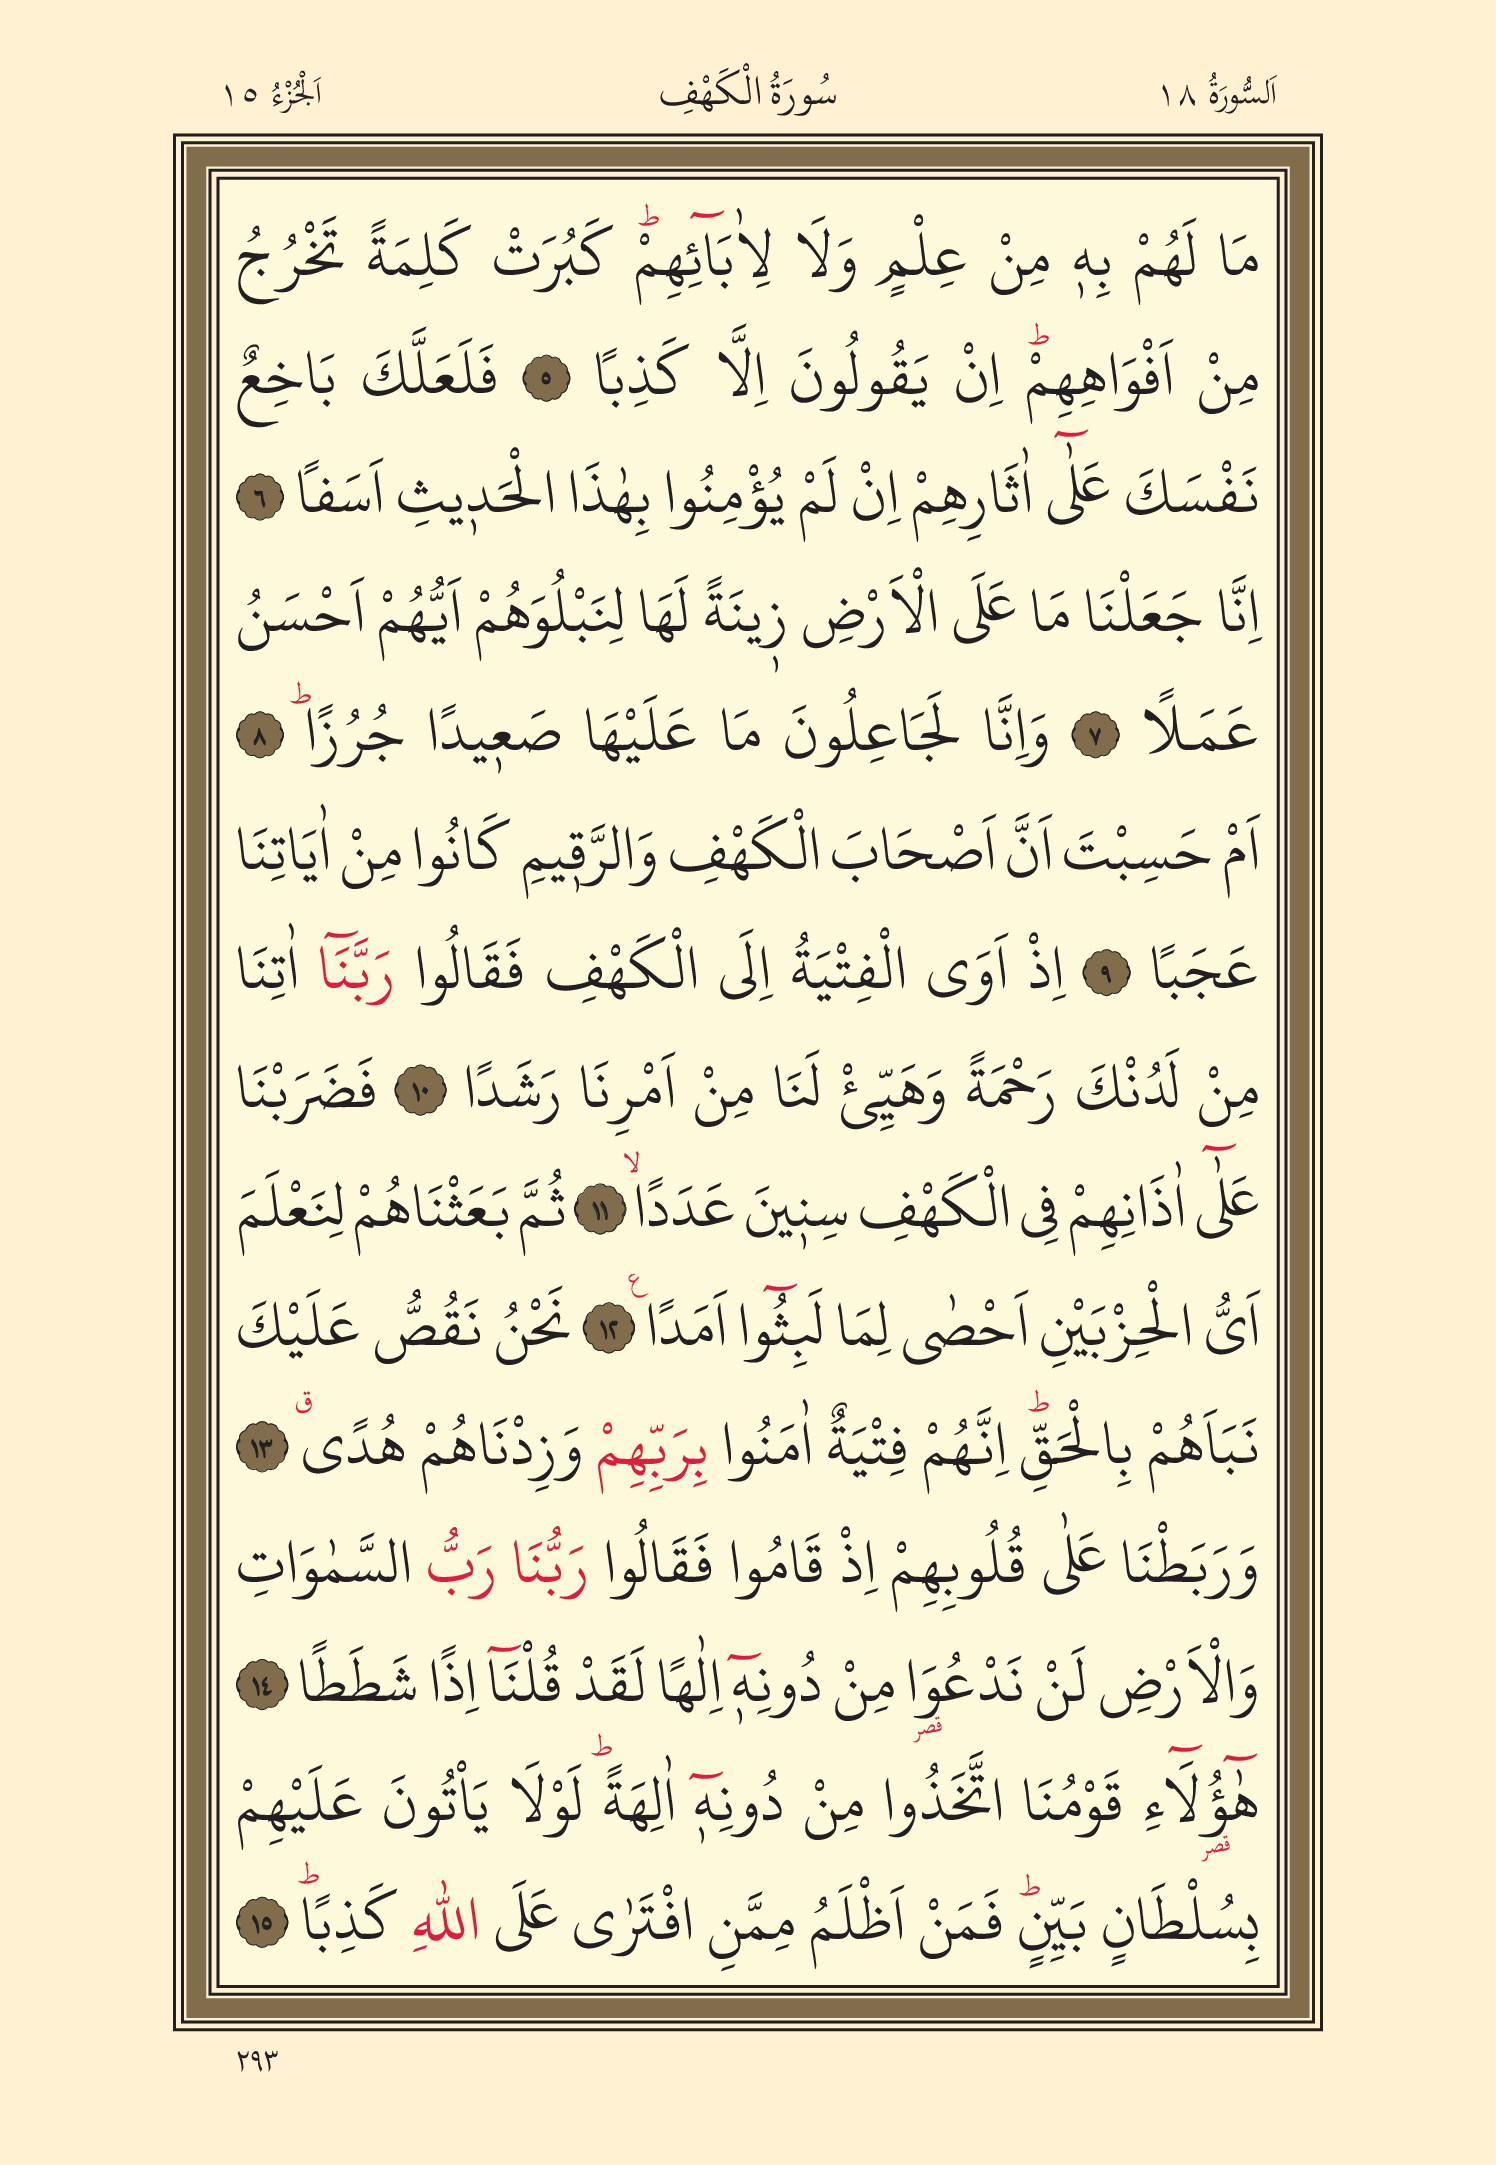 اَلسُّورَةُ ١٨ سُورَةُ الْكَهْفِ اَلْجُزْءُ ١٥
مَا لَهُمْ بِه۪ مِنْ عِلْمٍ وَلَا لِاٰبَٓائِهِمْۜ كَبُرَتْ كَلِمَةً تَخْرُجُ
مِنْ اَفْوَاهِهِمْۜ اِنْ يَقُولُونَ اِلَّا كَذِبًا ٥ فَلَعَلَّكَ بَاخِعٌ
نَفْسَكَ عَلٰٓى اٰثَارِهِمْ اِنْ لَمْ يُؤْمِنُوا بِهٰذَا الْحَد۪يثِ اَسَفاً ٦
اِنَّا جَعَلْنَا مَا عَلَى الْاَرْضِ ز۪ينَةً لَهَا لِنَبْلُوَهُمْ اَيُّهُمْ اَحْسَنُ
عَمَـلًا ٧ وَاِنَّا لَجَاعِلُونَ مَا عَلَيْهَا صَع۪يدًا جُرُزًاۜ ٨
اَمْ حَسِبْتَ اَنَّ اَصْحَابَ الْكَهْفِ وَالرَّق۪يمِ كَانُوا مِنْ اٰيَاتِنَا
عَجَبًا ٩ اِذْ اَوَى الْفِتْيَةُ اِلَى الْكَهْفِ فَقَالُوا رَبَّنَٓا اٰتِنَا
مِنْ لَدُنْكَ رَحْمَةً وَهَيِّئْ لَنَا مِنْ اَمْرِنَا رَشَدًا ١٠ فَضَرَبْنَا
عَلٰٓى اٰذَانِهِمْ فِى الْكَهْفِ سِن۪ينَ عَدَدًاۙ ١١ ثُمَّ بَعَثْنَاهُمْ لِنَعْلَمَ
اَىُّ الْحِزْبَيْنِ اَحْصٰى لِمَا لَبِثُٓوا اَمَدًا ع ١٢ نَحْنُ نَقُصُّ عَلَيْكَ
نَبَاَهُمْ بِالْحَقِّۜ اِنَّهُمْ فِتْيَةٌ اٰمَنُوا بِرَبِّهِمْ وَزِدْنَاهُمْ هُدًىۗ ١٣
وَرَبَطْنَا عَلٰى قُلُوبِهِمْ اِذْ قَامُوا فَقَالُوا رَبُّنَا رَبُّ السَّمٰوَاتِ
وَالْاَرْضِ لَنْ نَدْعُوَا۬ مِنْ دُونِه۪ٓ اِلٰهًا لَقَدْ قُلْنَٓا اِذًا شَطَطًا ١٤
قصر
هٰٓؤُ۬لَٓاءِ قَوْمُنَا اتَّخَذُوا مِنْ دُونِه۪ٓ اٰلِهَةًۜ لَوْلَا يَاْتُونَ عَلَيْهِمْ
قصر
بِسُلْطَانٍ بَيِّنٍۜ فَمَنْ اَظْلَمُ مِمَّنِ افْتَرٰى عَلَى اللّٰهِ كَذِبًاۜ ١٥
٢٩٣